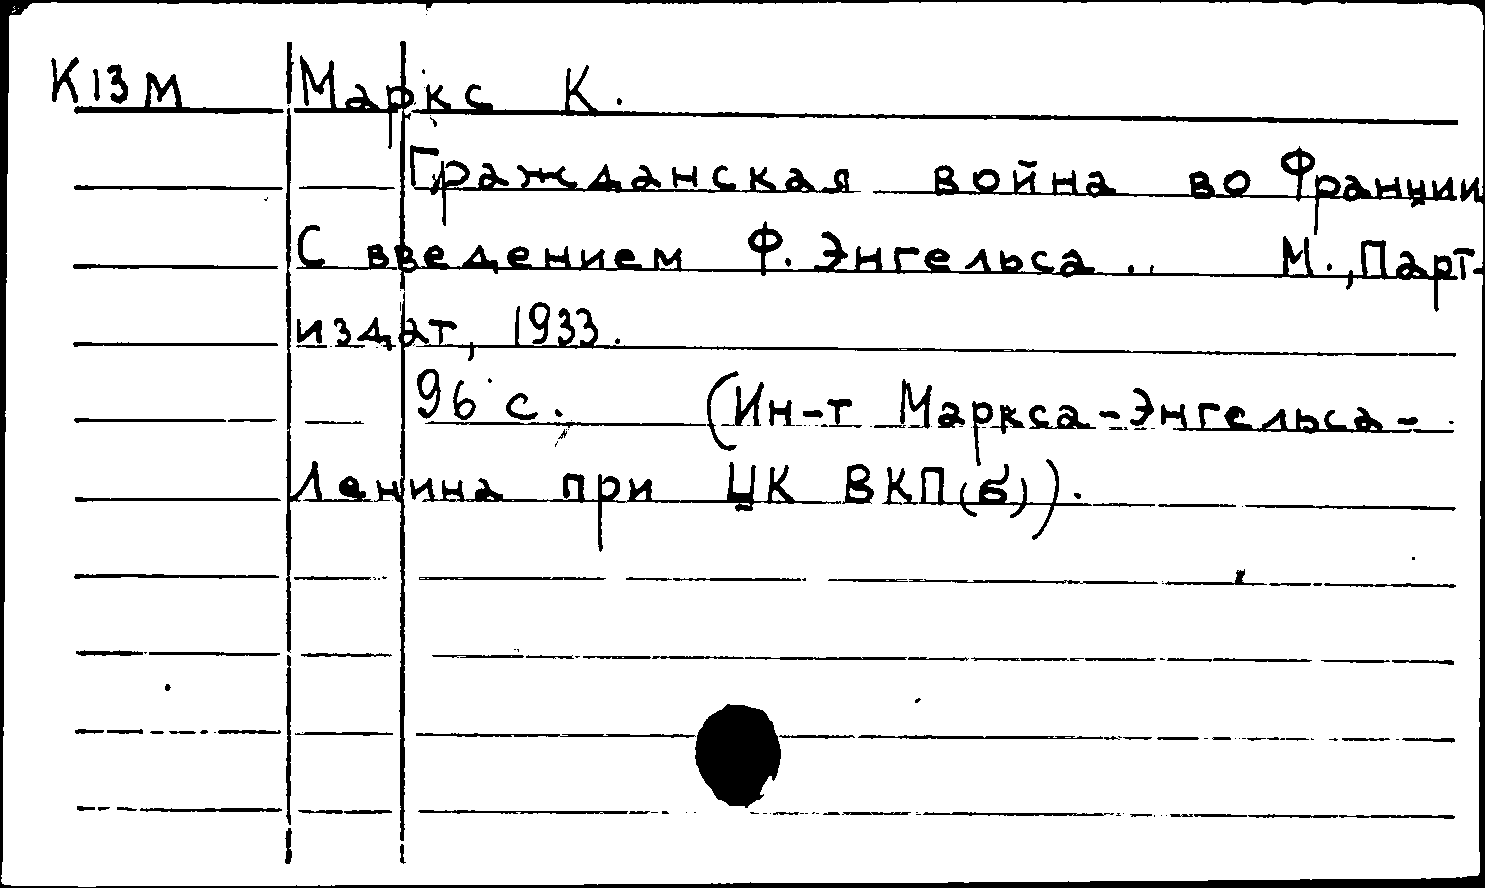 К13М Маркс К.
Гражданская война во Франции
С введением Ф. Энгельса.. М., Парт-
издат, 1933.
96 с. (Ин-т Маркса-Энгельса-
Ленина при ЦК ВКП(б)).